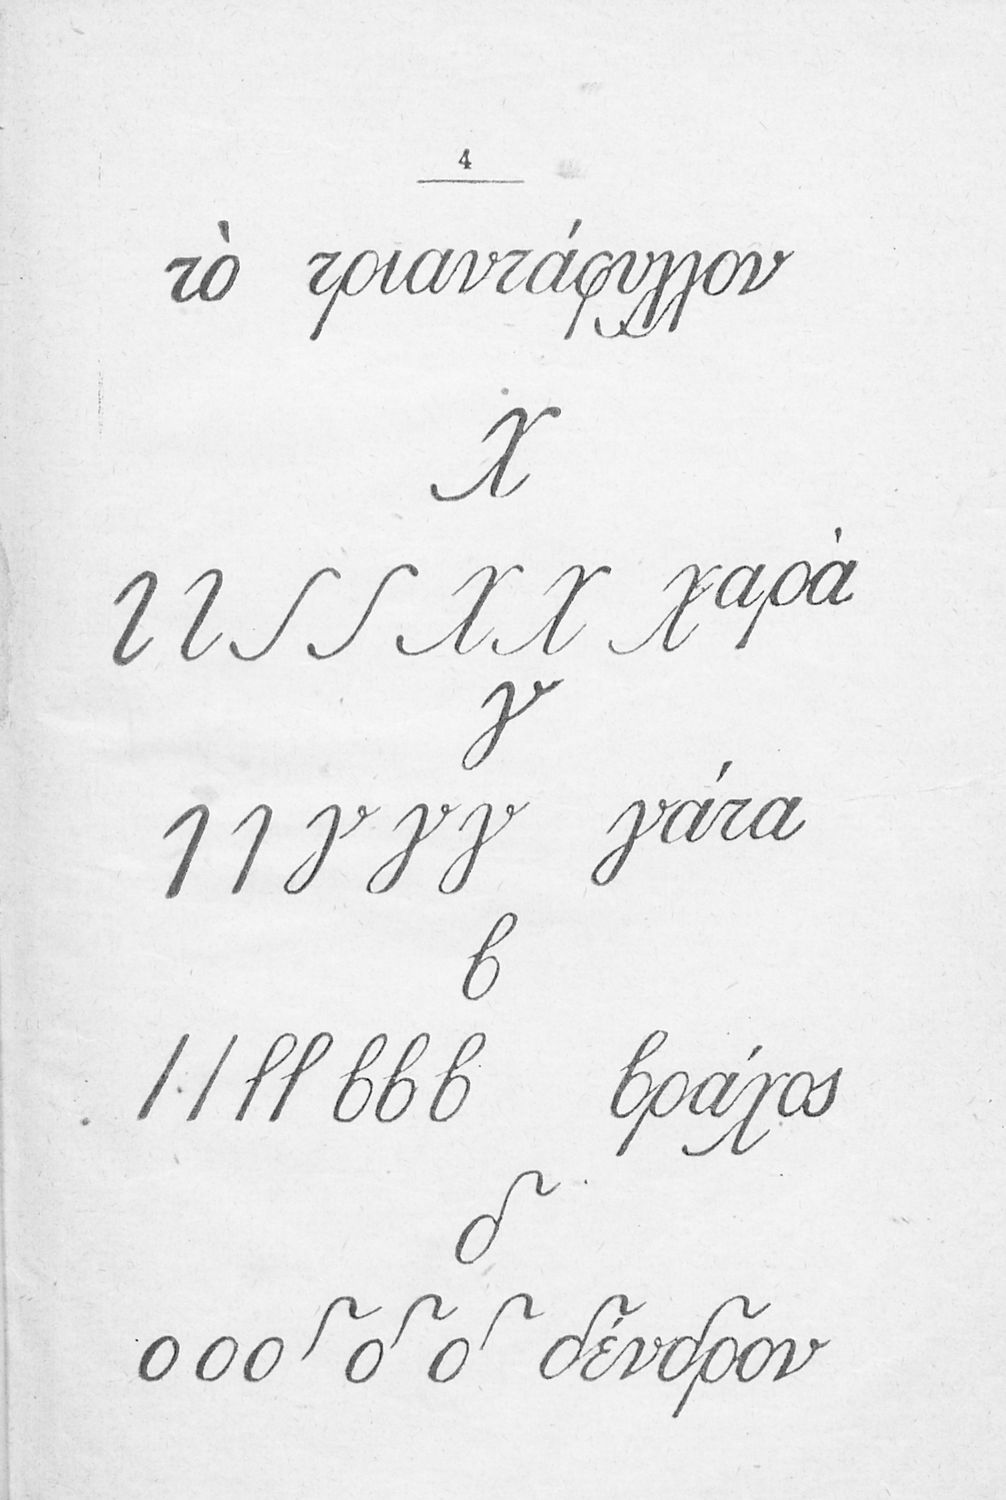 4
τὸ τριαντάφυλλον
χ
χ χ χαρὰ
γ
γ γ γ γάτα
β
β β β βράχος
δ
ο ο ο δ δ δένδρον